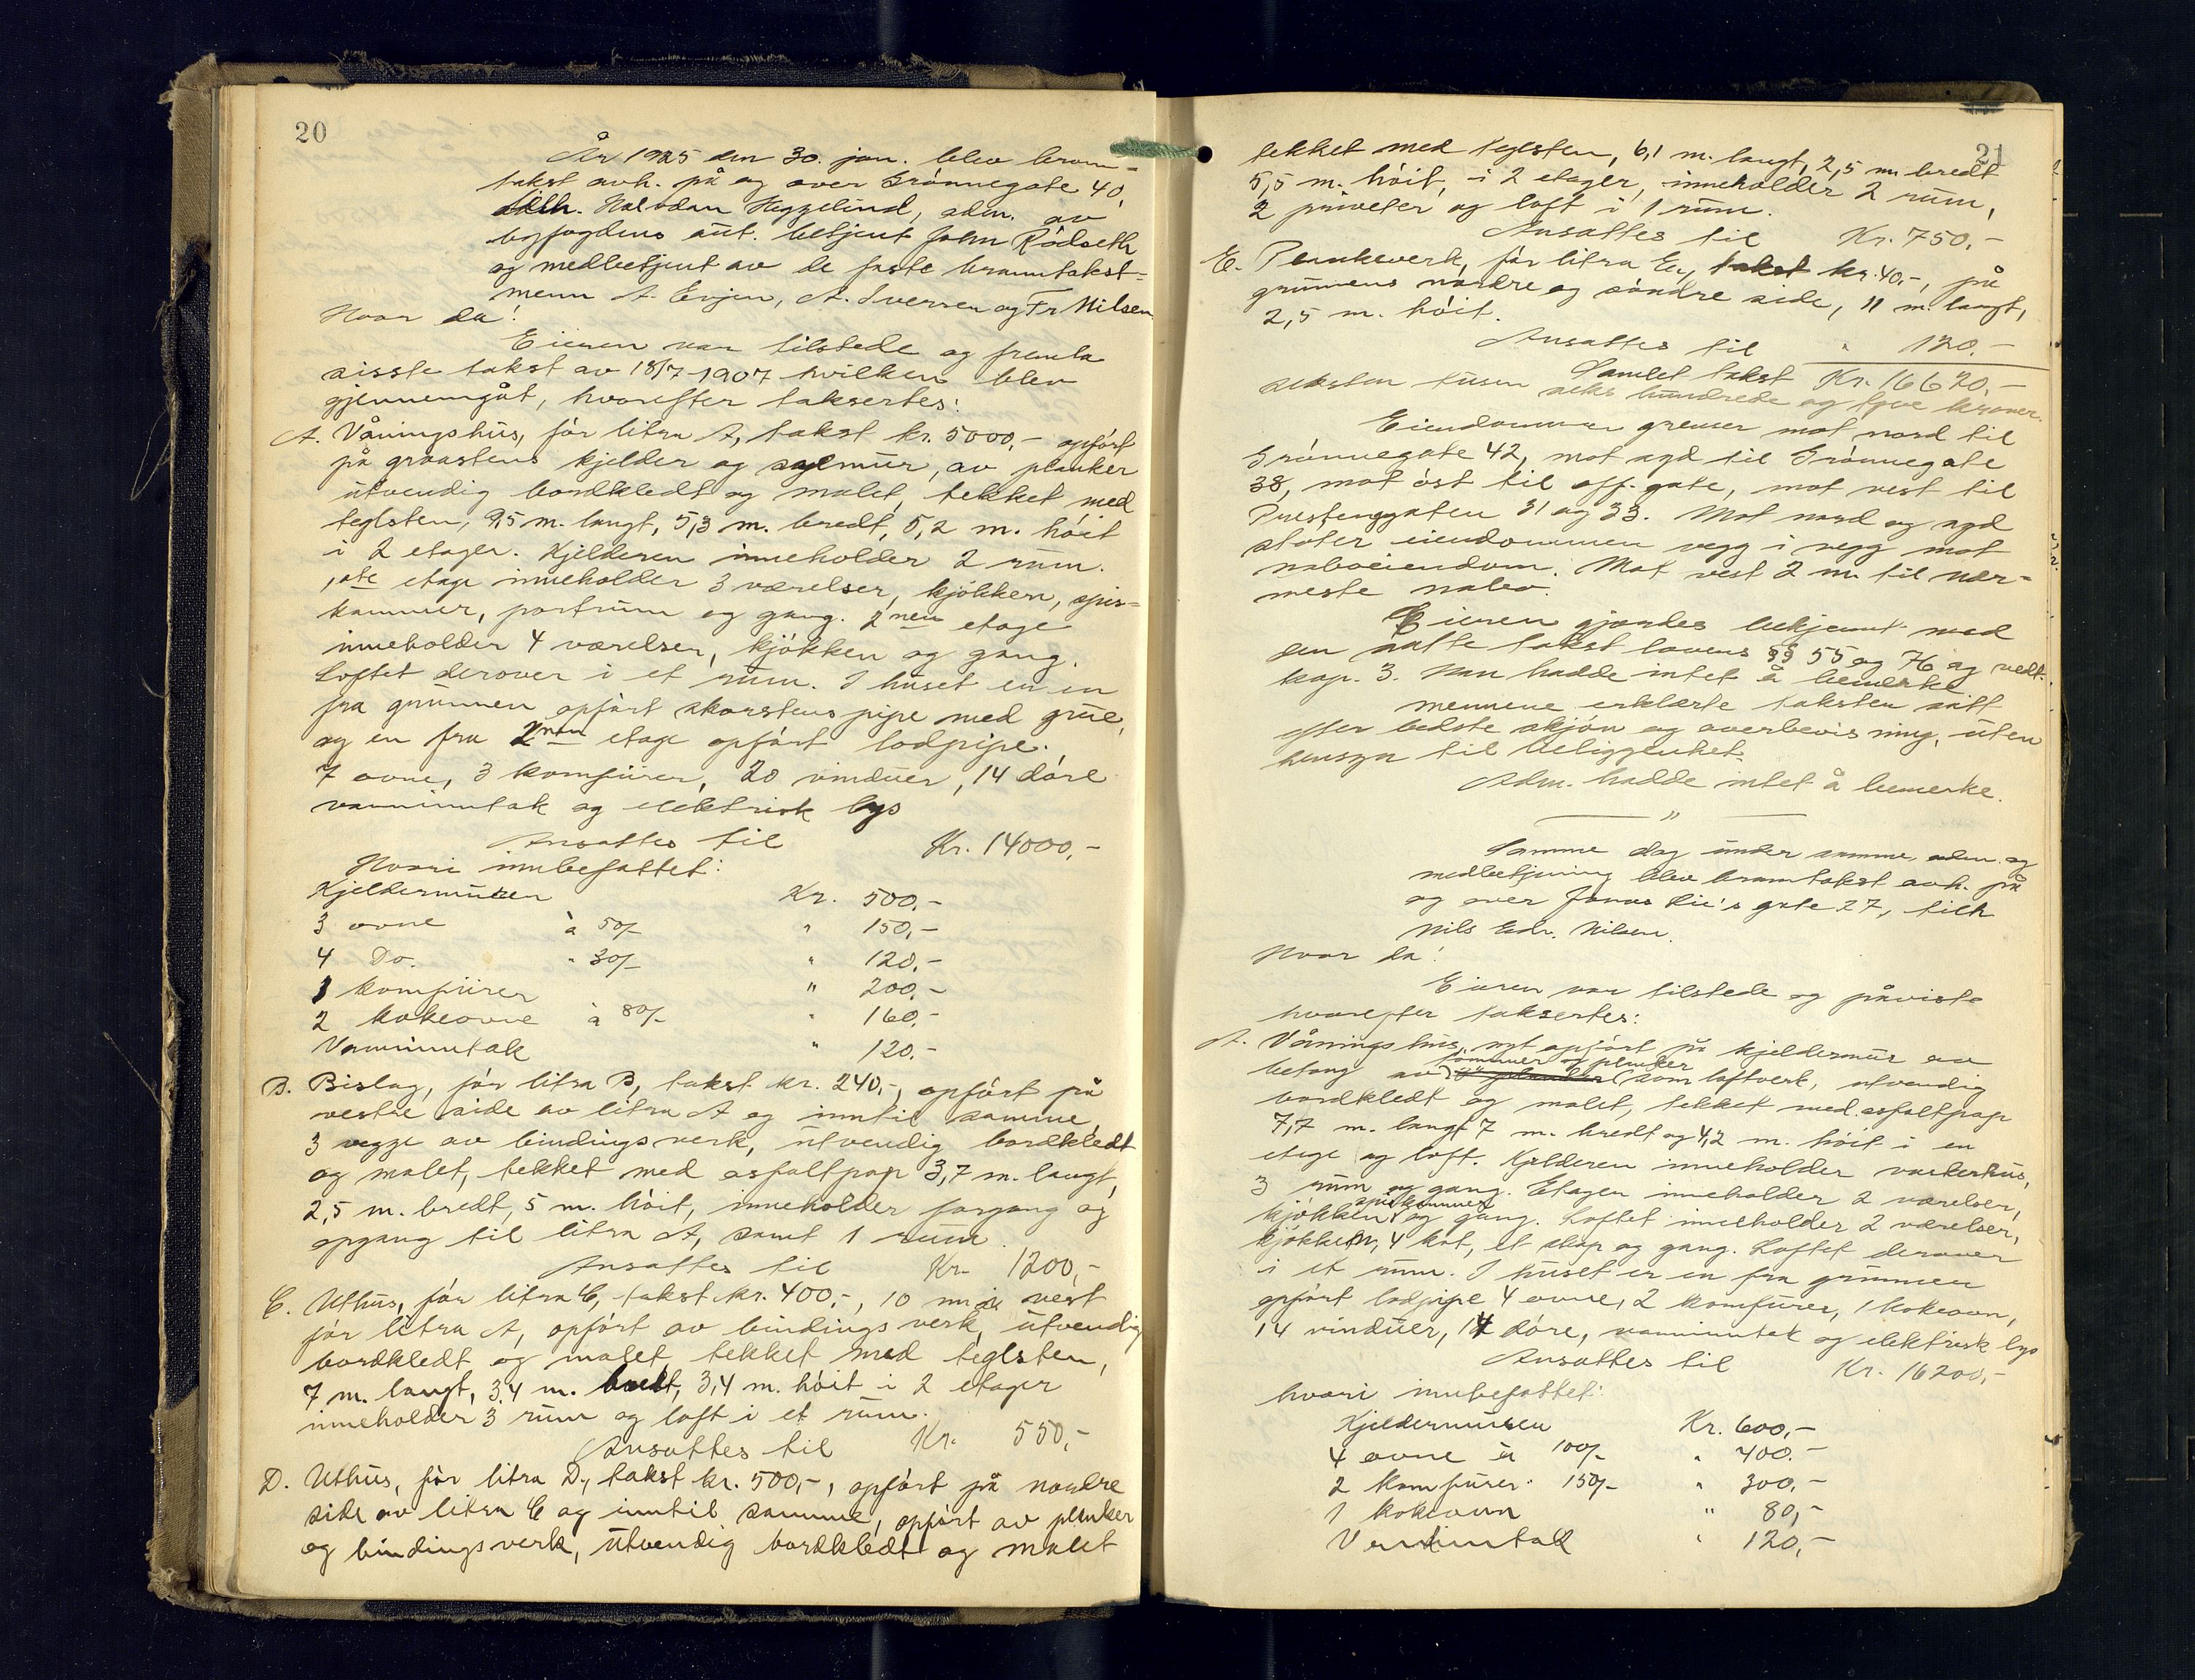 20
År 1925 den 30. jan. blev brann-
takst avh. på og over Grönnegate 40,
tilh. Halvdan Heggelund, adm. av
byfogdens aut. betjent John Rödseth
og medbetjent av de faste branntakst-
menn A. Evjen, A. Iversen og Fr Nilsen.
Hvor da!
Eieren var tilstede og fremla
sisste takst av 18/7-1907 hvilken blev
gjennemgåt, hvorefter taksertes:
A. Våningshus, för litra A, takst kr. 5000,- opfört
på graastens kjelder og sylmur, av planker
utvendig bordkledt og malet, tekket med
teglsten, 9,5 m. langt, 5,3 m. bredt, 5,2 m. höit
i 2 etager. Kjelderen inneholder 2 rum.
1ste etage inneholder 3 værelser, kjökken, spis-
kammer, portrum og gang. 2nen etage
inneholder 4 værelser, kjökken og gang.
Loftet derover i et rum. I huset er en
fra grunnen opfört skorstens pipe med grue,
og en fra 2nen etage opfört lodpipe.
7 ovne, 3 komfurer, 20 vinduer, 14 döre
vanninntak og elektrisk lys
Ansattes til Kr. 14000,-
Hvori innbefattet:
Kjeldermuren Kr. 500,-
3 ovne à 50/- " 150,-
4 Do. " 30/- " 120,-
1 komfurer " 200,-
2 kokeovne à 80/- " 160,-
Vanninntak " 120,-
B. Bislag, för litra B, takst kr. 240,-, opfört på
vestre side av litra A og inntil samme,
3 vegge av bindingsverk, utvendig bordkledt
og malet, tekket med asfaltpap 3,7 m. langt,
2,5 m. bredt, 5 m. höit, inneholder forgang og
opgang til litra A, samt 1 rum.
Ansattes til Kr. 1200,-
C. Uthus, för litra C, takst kr. 400,-, 10 m i vest
för litra A, opfört av bindingsverk, utvendig
bordkledt og malet, tekket med teglsten,
7 m. langt, 3,4 m. bredt, 3,4 m. höit i 2 etager
inneholder 3 rum og loft i et rum.
Ansattes til Kr. 550,-
D. Uthus, för litra D, takst kr. 500,-, opfört på nordre
side av litra C og inntil samme, opfört av planker
og bindingsverk, utvendig bordkledt og malet
21
tekket med teglsten, 6,1 m. langt, 2,5 m. bredt
5,5 m. höit, i 2 etager, inneholder 2 rum,
2 priveter og loft i 1 rum.
Ansattes til Kr. 750,-
E. Plankeverk, för litra E, takst kr. 40,-, på
grunnens nordre og söndre side, 11 m. langt,
2,5 m. höit.
Ansattes til " 120.-
Samlet takst Kr. 16620,-
seksten tusen seks hundrede og tyve kroner.
Eiendommen grenser mot nord til
Grönnegate 42, mot syd til Grönnegate
38, mot öst til off. gate, mot vest til
Prestenggaten 31 og 33. Mot nord og syd
stöter eiendommen vegg i vegg mot
naboeiendom. Mot vest 2 m. til nær-
meste nabo.
Eieren gjordes bekjennt med
den satte takst lovens §§ 55 og 76 og vedt.
kap. 3. Han hadde intet å bemerke
mennene erklærte taksten satt
efter bedste skjön og overbevisning, uten
hensyn til beliggenhet.
Adm. hadde intet å bemerke.
"
Samme dag under samme adm. og
medbetjening blev branntakst avh. på
og over Jonas Lie's gate 27, tilh
Nils Edv. Nilsen.
Hvor da!
Eieren var tilstede og påviste
hvorefter taksertes:
A. Våningshus, nyt opfört på kjeldermur av
betong av tömmer og planker som loftverk, utvendig
bordkledt og malet, tekket med asfaltpap
7,7 m. langt 7 m. bredt og 4,2 m. höit i en
etage og loft. Kjelderen inneholder vaskerhus,
3 rum og gang. Etagen inneholder 2 værelser,
kjökken, spiskammer og gang. Loftet inneholder 2 værelser,
kjökken, 4 kot, et skap og gang. Loftet derover
i et rum. I huset er en fra grunnen
opfört lodpipe 4 ovne, 2 komfurer, 1 kokeovn,
14 vinduer, 14 döre, vanninntak og elektrisk lys
Ansattes til Kr. 16200,-
hvori innbefattet:
Kjeldermuren Kr. 600,-
4 ovne à 100/- " 400.-
2 komfurer " 150/- " 300,-
1 kokeovn " 80,-
Vanninntak " 120,-